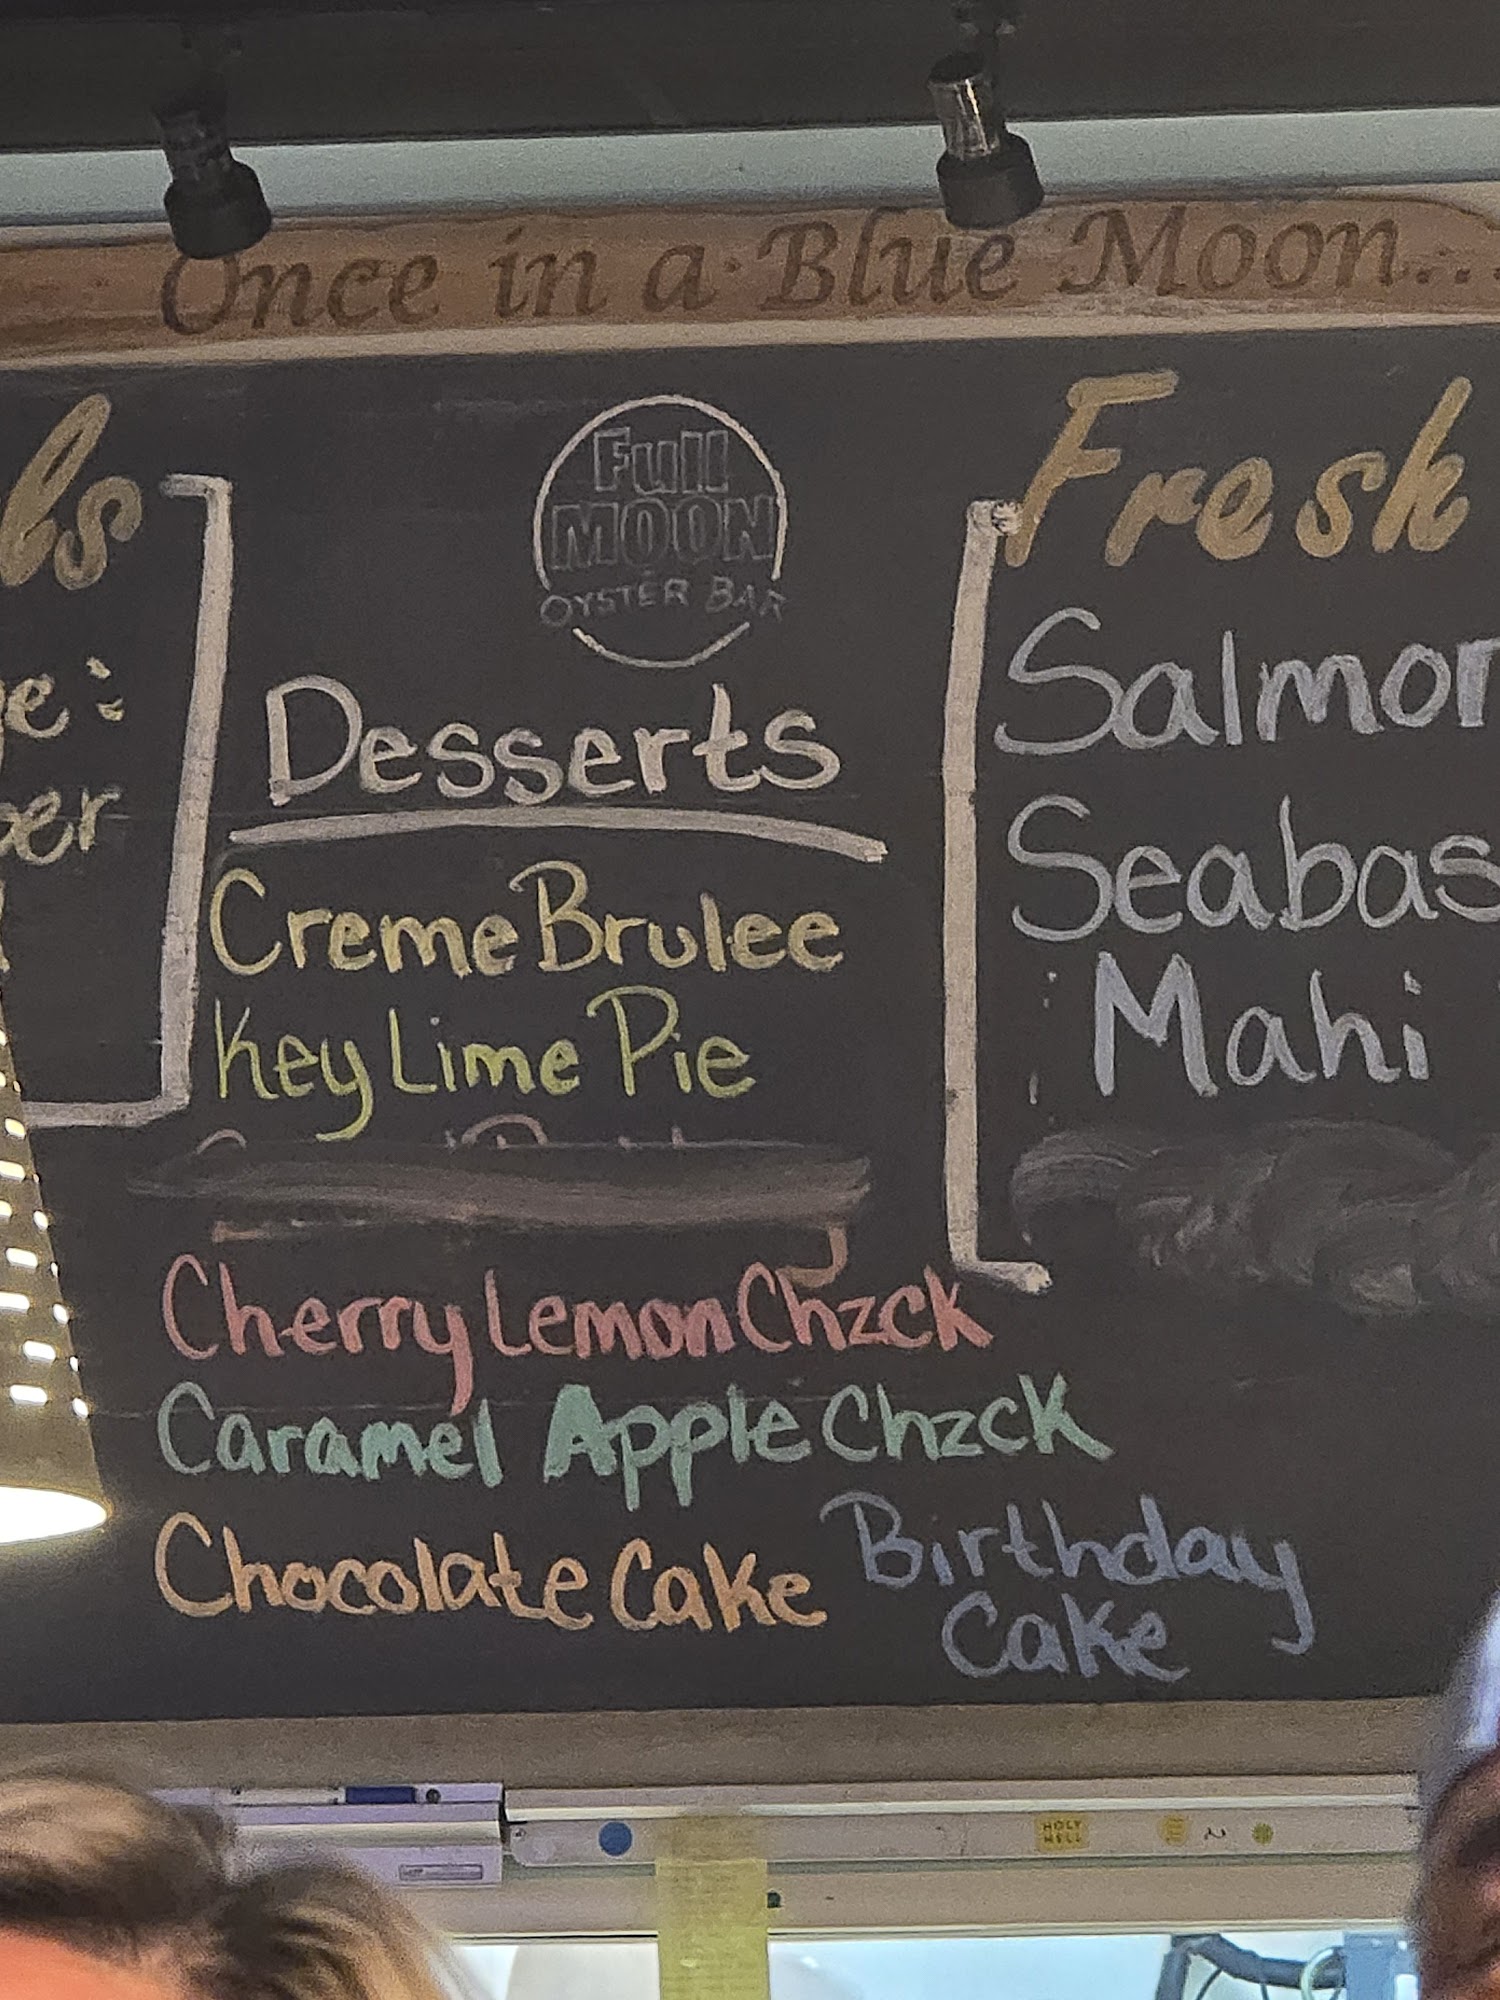 Once in a Blue Moon...
Full
MOON
OYSTER BAR
Desserts
Creme Brulee
Key Lime Pie
Cherry Lemon Chzck
Caramel Apple Chzck
Chocolate Cake
Birthday
Cake
Fresh
Salmon
Seabas
Mahi
HOLY
HELL